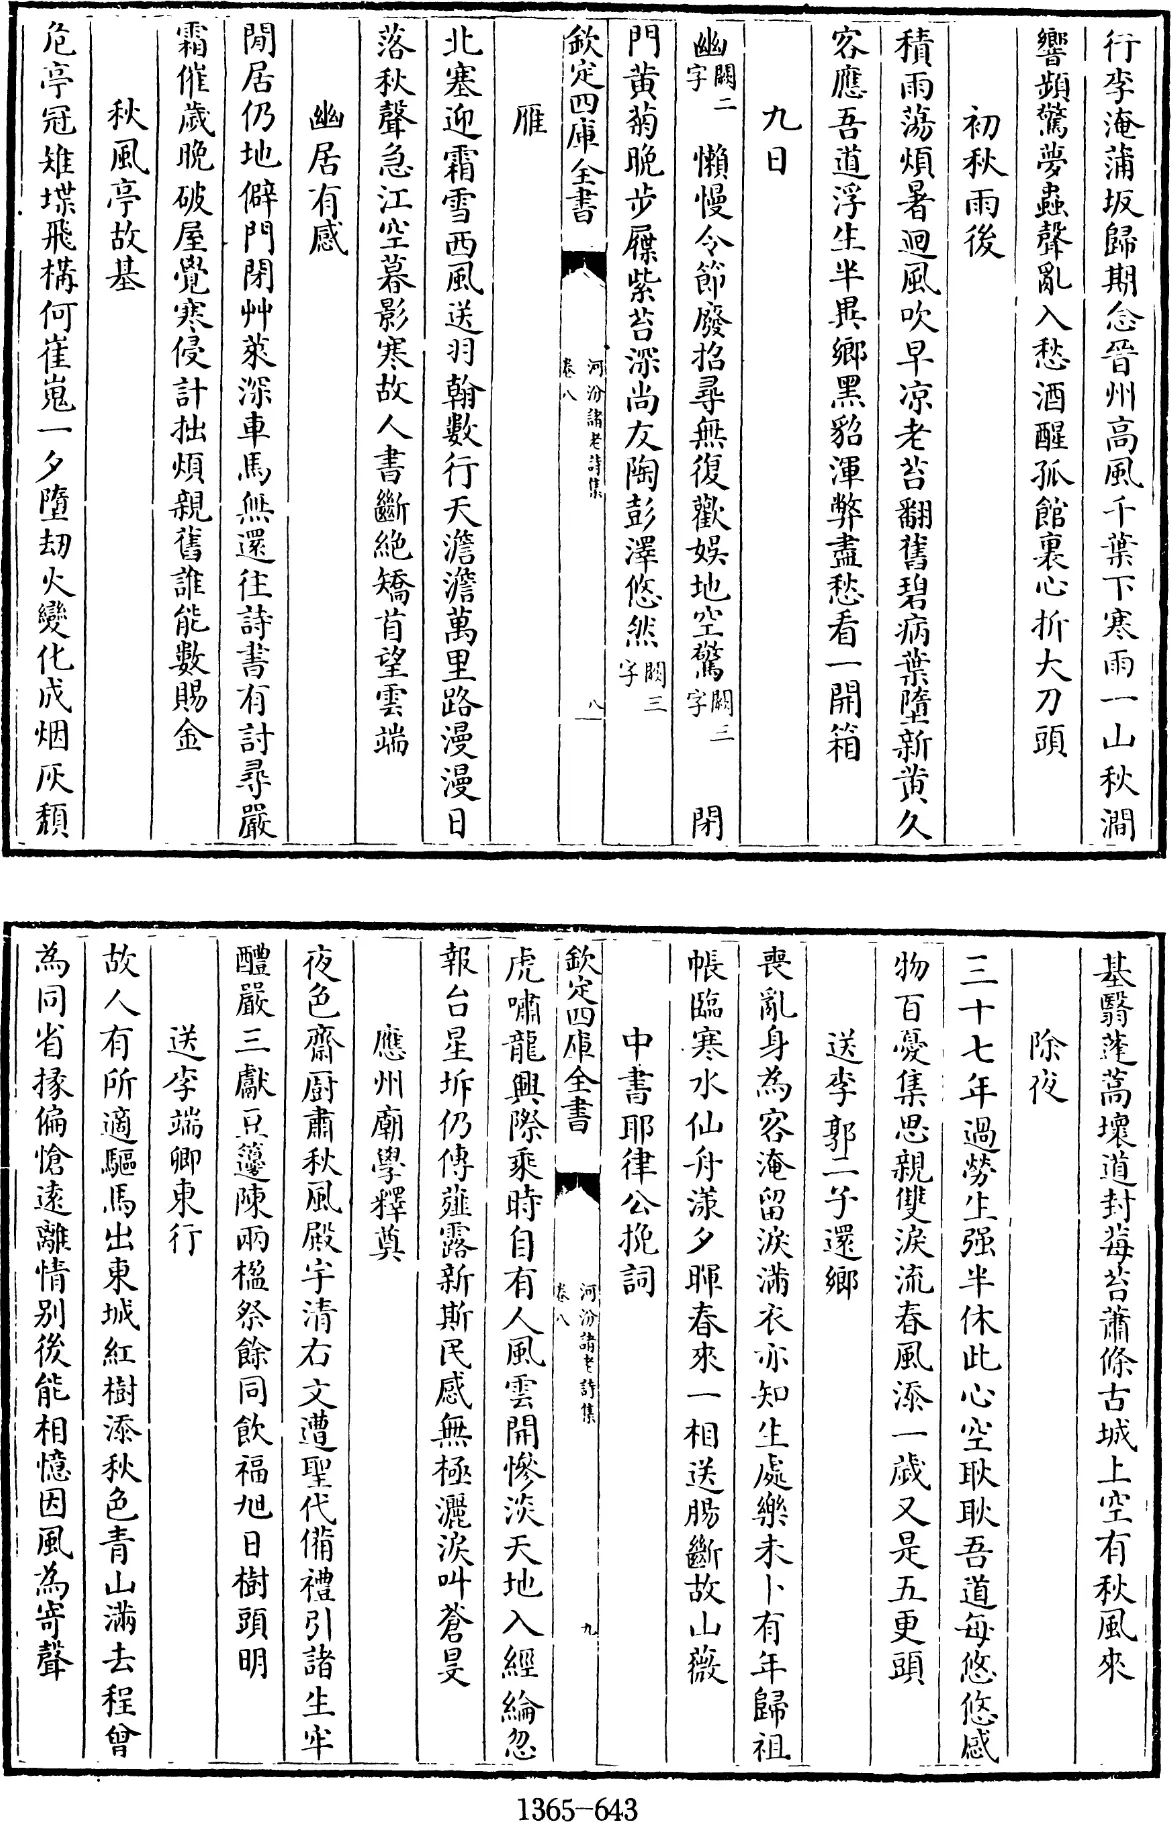 行李淹蒲坂歸期念晉州高風千葉下寒雨一山秋澗
響頻驚夢蟲聲亂入愁酒醒孤館裏心折大刀頭
初秋雨後
積雨蕩煩暑迴風吹早凉老苔翻舊碧病葉墮新黄久
容應吾道浮生半異鄉黑貂渾弊盡愁看一開箱
九日
幽闕二字懶慢令節廢招尋無復歡娱地空驚闕三字閉
門黄菊晚步屧紫苔深尚友陶彭澤悠然闕三字
欽定四庫全書
河汾諸老詩集
卷八
八
雁
北塞迎霜雪西風送羽翰數行天澹澹萬里路漫漫日
落秋聲急江空暮影寒故人書斷絶矯首望雲端
幽居有感
閒居仍地僻門閉艸萊深車馬無還往詩書有討尋嚴
霜催歲晚破屋覺寒侵計拙煩親舊誰能數賜金
秋風亭故基
危亭冠雉堞飛構何崔嵬一夕墮刼火變化成烟灰頽
基翳蓬蒿壞道封莓苔蕭條古城上空有秋風來
除夜
三十七年過勞生强半休此心空耿耿吾道每悠悠感
物百憂集思親雙淚流春風添一歲又是五更頭
送李郭二子還鄉
喪亂身為客淹留淚滿衣亦知生處樂未卜有年歸祖
帳臨寒水仙舟漾夕暉春來一相送腸斷故山薇
中書耶律公挽詞
欽定四庫全書
河汾諸老詩集
卷八
九
虎嘯龍興際乘時自有人風雲開慘淡天地入經綸忽
報台星坼仍傳薤露新斯民感無極灑淚叫蒼旻
應州廟學釋奠
夜色齋厨肅秋風殿宇清右文遭聖代備禮引諸生牢
醴嚴三獻豆籩陳兩楹祭餘同飲福旭日樹頭明
送李端卿東行
故人有所適驅馬出東城紅樹添秋色青山滿去程曾
為同省掾偏愴遠離情别後能相憶因風為寄聲
1365-643